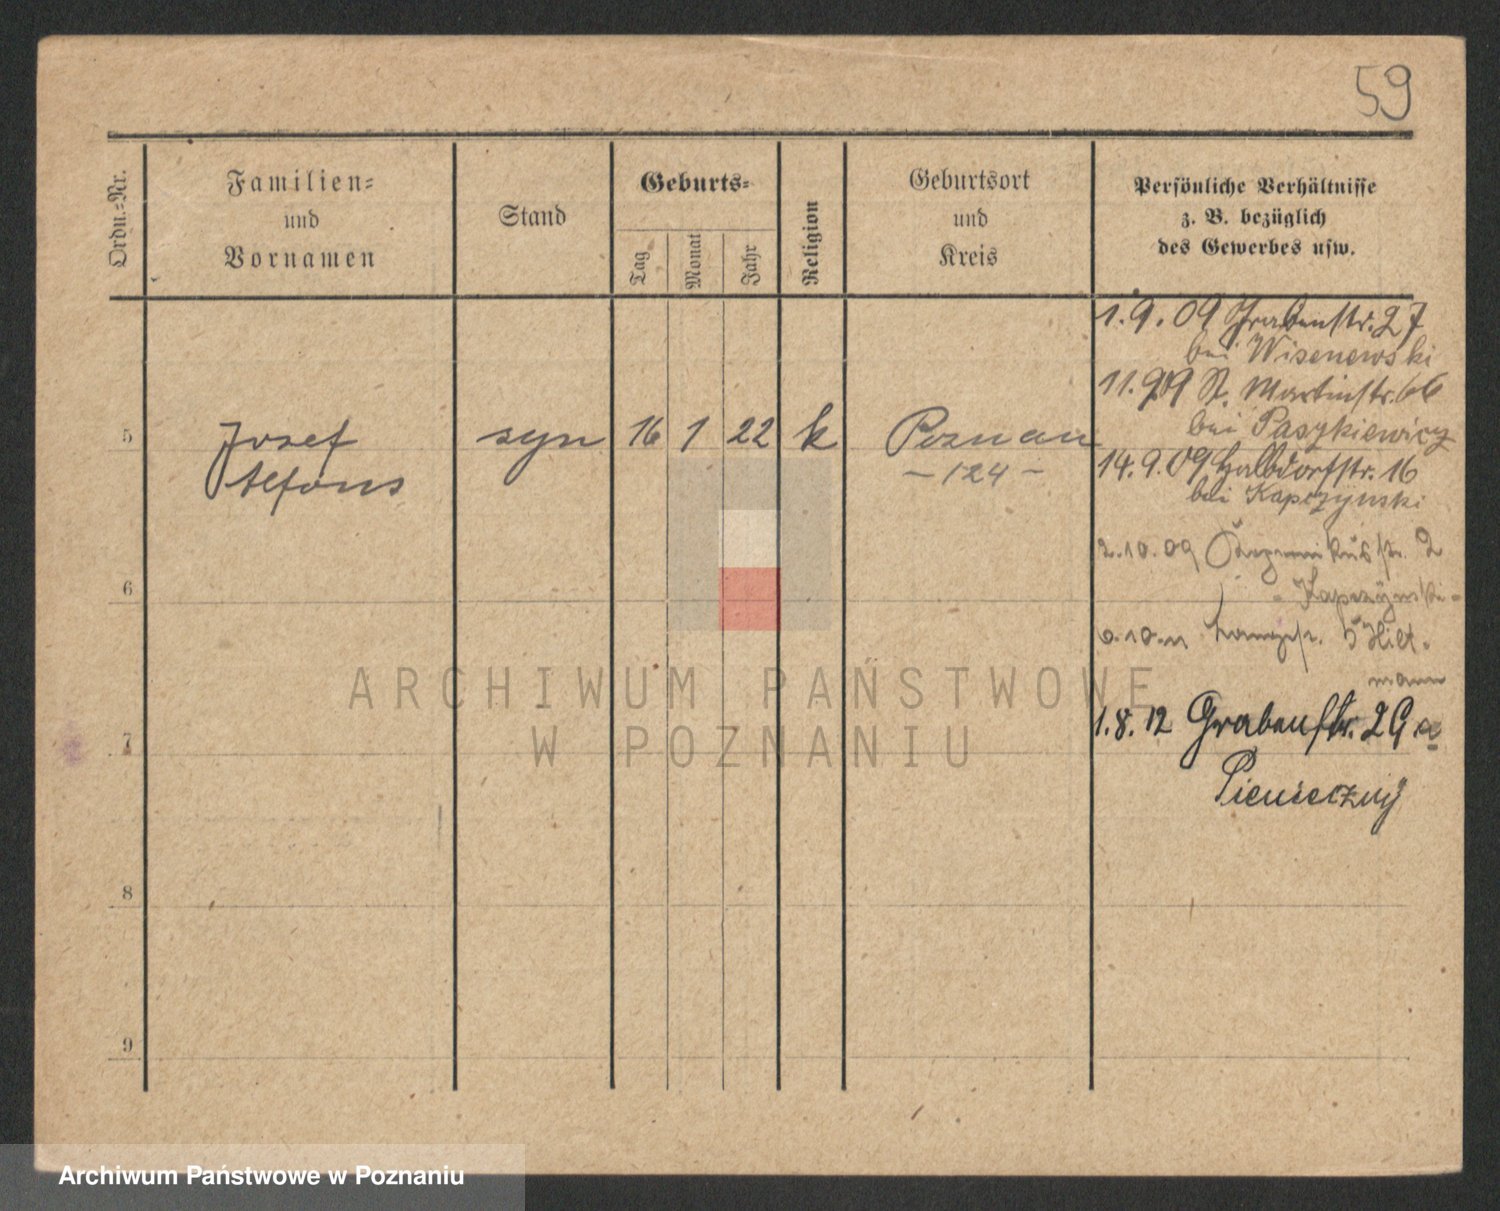 59
Ordn.-Nr.
Familien-
und
Vornamen
Stand
Geburts-
Tag
Monat
Jahr
Religion
Geburtsort
und
Kreis
Persönliche Verhältnisse
z. B. bezüglich
des Gewerbes usw.
1.9.09 Grabenstr. 27
bei Wisenewski
11.9.09 St. Martinstr. 66
bei Paszkiewicz
5 Josef syn 16 1 22 k Poznan
Alfons - 124 -
14.9.09 Halbdorfstr. 16
bei Kapczynski
2.10.09 str. 2
6
- Kapczynski -
Langestr. 5 Hilt-
mann
1.8.12 Grabenstr. 29 a
7
Pienieczny
8
9
ARCHIWUM PAŃSTWOWE
W POZNANIU
Archiwum Państwowe w Poznaniu